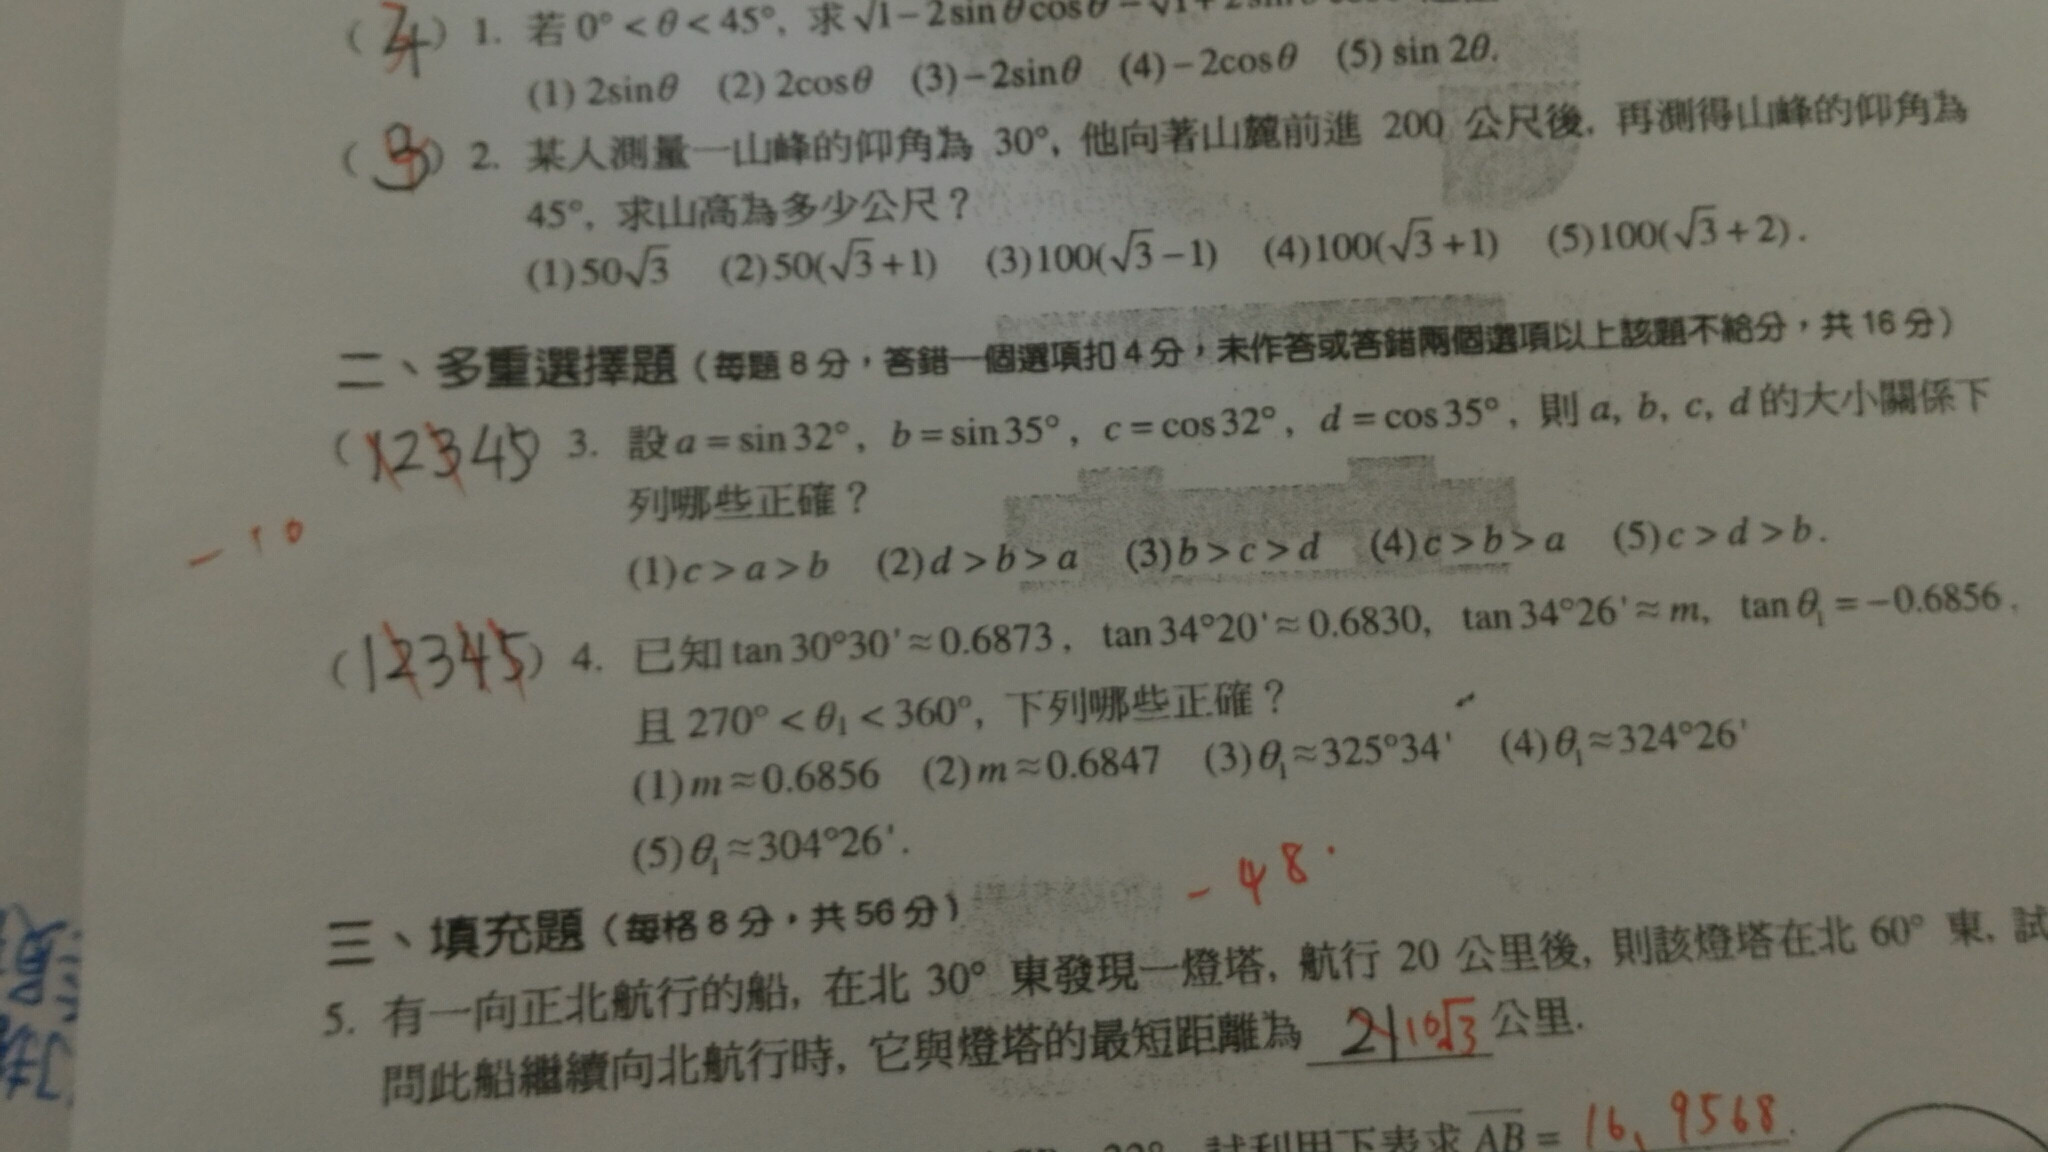 ( 4 ) 1. 若 0° < θ < 45°, 求 √1−2sinθcosθ − √1+2sin
(1) 2sinθ (2) 2cosθ (3) −2sinθ (4) −2cosθ (5) sin 2θ.
( ) 2. 某人測量一山峰的仰角為 30°, 他向著山麓前進 200 公尺後, 再測得山峰的仰角為
45°, 求山高為多少公尺？
(1)50√3 (2)50(√3+1) (3)100(√3−1) (4)100(√3+1) (5)100(√3+2).
二、多重選擇題（每題8分，答錯一個選項扣4分，未作答或答錯兩個選項以上該題不給分，共16分）
(12345) 3. 設a=sin32°, b=sin35°, c=cos32°, d=cos35°, 則a, b, c, d的大小關係下
列哪些正確？
−10
(1)c>a>b (2)d>b>a (3)b>c>d (4)c>b>a (5)c>d>b.
(12345) 4. 已知tan30°30'≈0.6873, tan34°20'≈0.6830, tan34°26'≈m, tanθ₁=−0.6856,
且270°<θ₁<360°, 下列哪些正確？
(1)m≈0.6856 (2)m≈0.6847 (3)θ₁≈325°34' (4)θ₁≈324°26'
(5)θ₁≈304°26'.
−48.
三、填充題（每格8分，共56分）
5. 有一向正北航行的船, 在北 30° 東發現一燈塔, 航行 20 公里後, 則該燈塔在北 60° 東, 試
問此船繼續向北航行時, 它與燈塔的最短距離為 21 10√3 公里.
試利用下表求 AB = 16.9568.